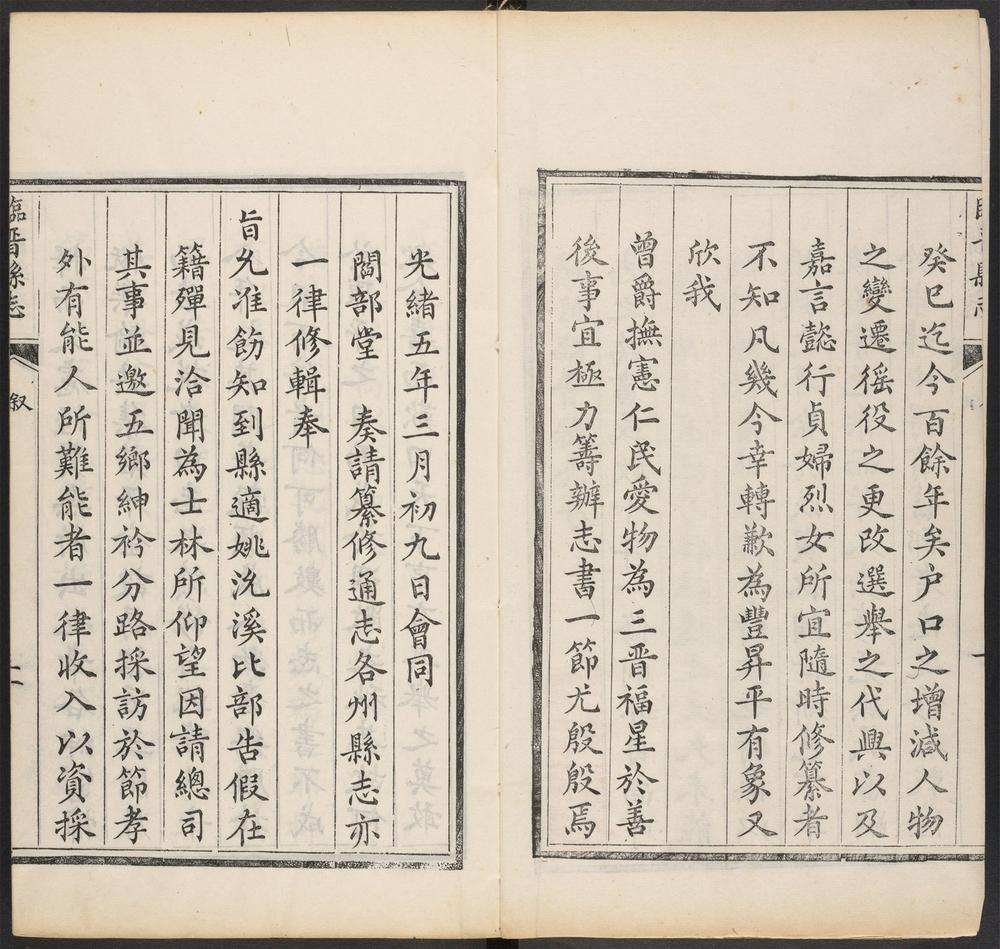 癸巳迄今百餘年矣户口之增減人物
之變遷徭役之更改選舉之代興以及
嘉言懿行貞婦烈女所宜隨時修纂者
不知凡幾今幸轉歉為豐昇平有象又
欣我
曾爵撫憲仁民愛物為三晋福星於善
後事宜極力籌辦志書一節尤殷殷焉
光緒五年三月初九日會同
閻部堂 奏請纂修通志各州縣志亦
一律修輯奉
旨允准飭知到縣適姚沇溪比部告假在
籍殫見洽聞為士林所仰望因請總司
其事並邀五鄉紳衿分路採訪於節孝
外有能人所難能者一律收入以資採
臨晋縣志
叙